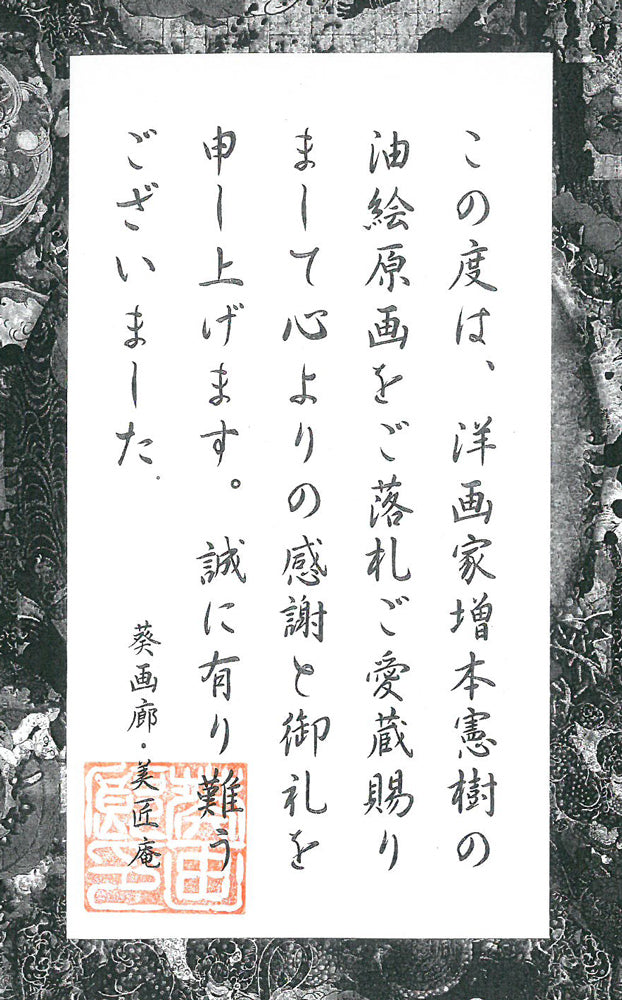 この度は、洋画家増本憲樹の
油絵原画をご落札ご愛蔵賜り
まして心よりの感謝と御礼を
申し上げます。誠に有り難う
ございました.
葵画廊・美匠庵